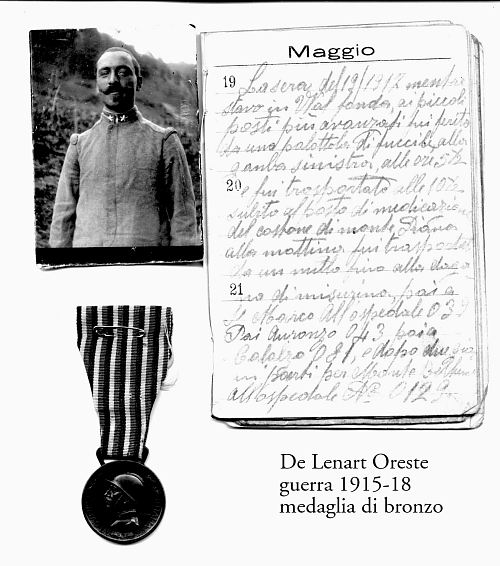 Maggio
19 La sera del 19/1917 mentre
stavo in Val fonda ai piccoli
posti più avanzati fui ferito
da una palottola di fuccile alla
gamba sinistra, alle ore 5½
20 e fui trasportato alle 10½
subito al posto di medicazione
del costone di monte Piana
alla mattina fui trasportato
da un mullo fino alla
21 di misurina, poi a
S. Marco All ospedale 039
Poi Auronzo 043 poi a
Calalzo 081, e dopo due
parti per
all'ospedale No 012
De Lenart Oreste
guerra 1915-18
medaglia di bronzo